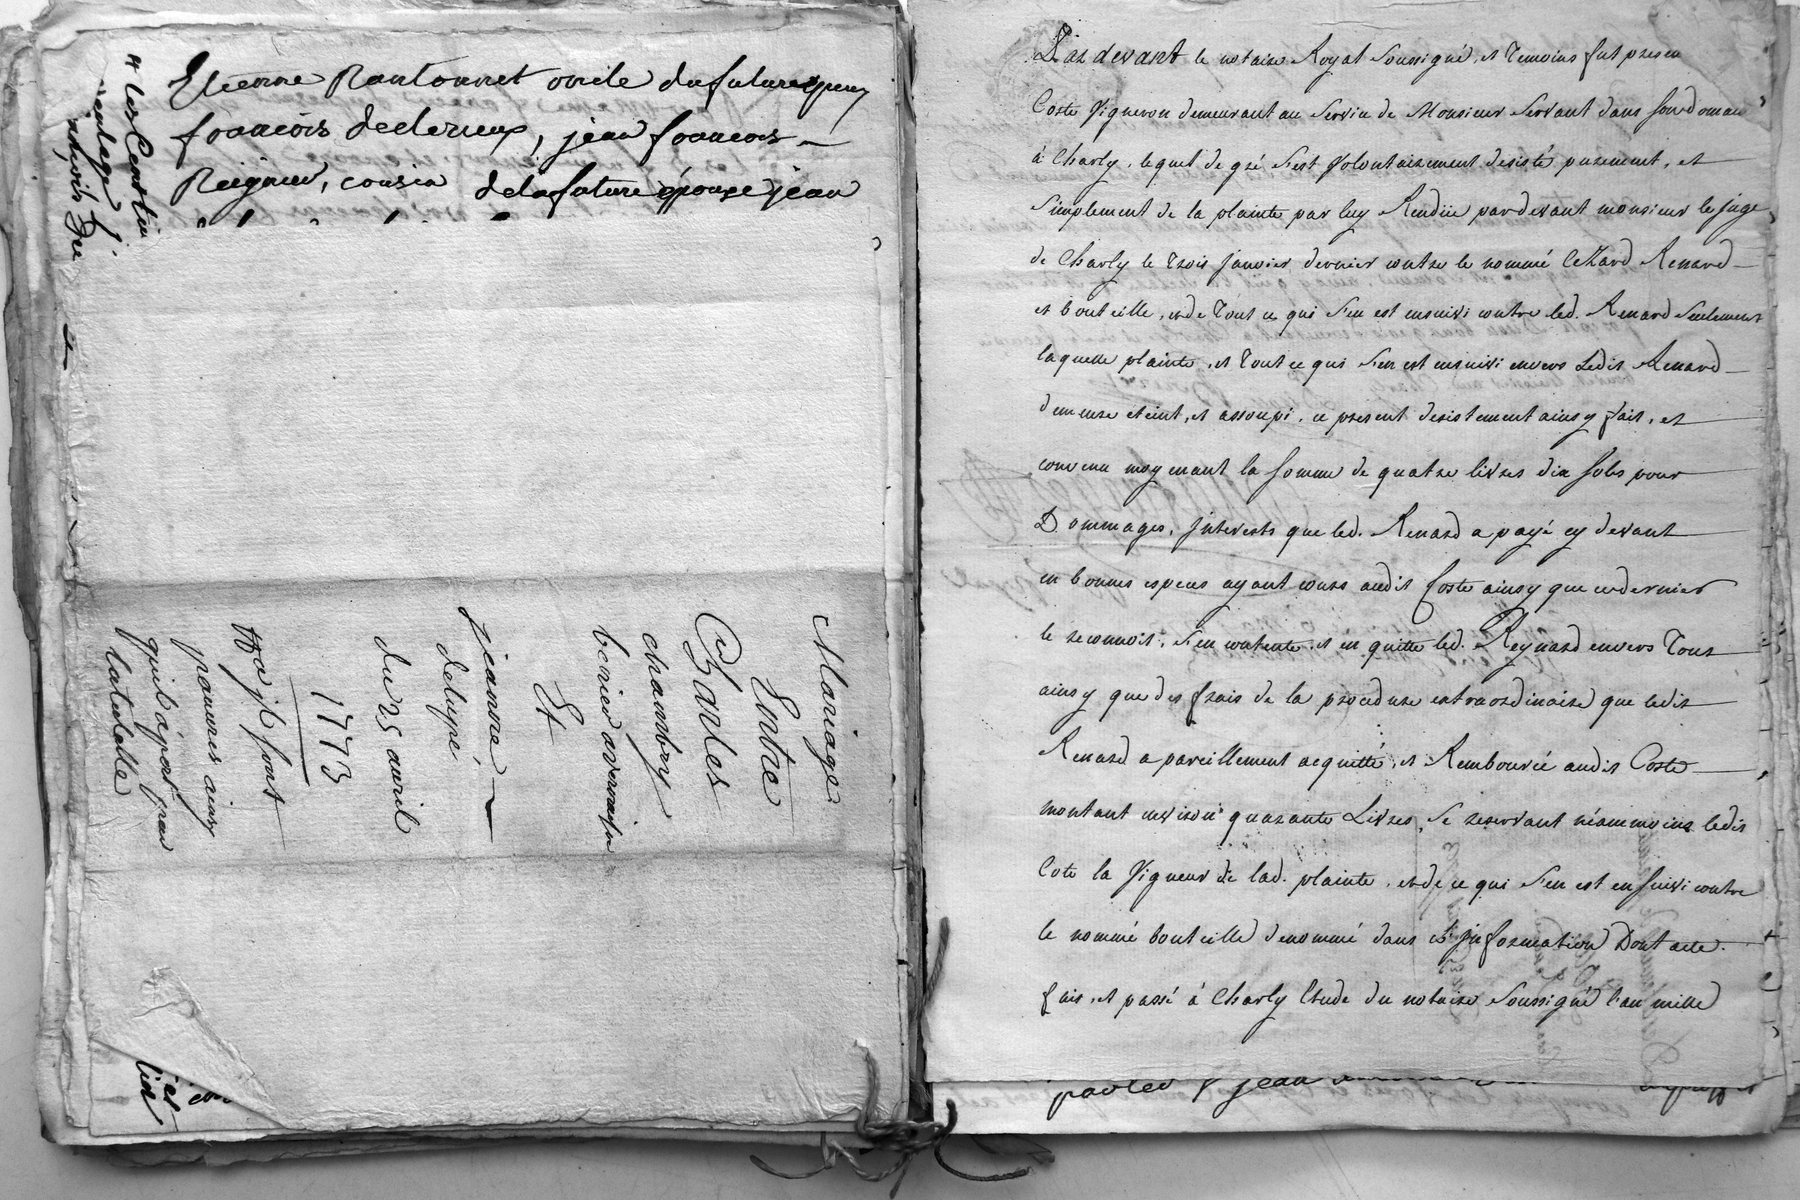 Etienne Rantonnet oncle du futur epoux
francois declerieux, jean francois
Reignier, cousin de la future épouse jean
Mariage
Entre
Charles
chambry
Et
jeanne
delupé
du 25 avril
1773
pauvres ainsy
qu'il apert par
la tutelle
Par devant le notaire Royal soussigné, et temoins fut presen
Coste Vigneron demeurant au service de Monsieur Servant dans son domai
à Charly, lequel de gré s'est volontairement desisté purement, et
simplement de la plainte par luy Rendüe par devant monsieur le juge
de Charly le trois janvier dernier contre le nommé Renard
et bouteille, et de tout ce qui s'en est ensuivi contre led. Renard seulement
laquelle plainte, et tout ce qui s'en est ensuivi envers Ledit Renard
demeure éteint, et assoupi, ce present desistement ainsy fait, et
convenu moyenant la somme de quatre livres dix sols pour
Dommages, interests que led. Renard a payé cy devant
en bonnes especes ayant cours audit Coste ainsy que ce dernier
le reconnoit, s'en contente, et en quitte led. Reynard envers tous
ainsy que des frais de la procedure extraordinaire que ledit
Renard a pareillement acquitté, et Remboursé audit Coste
montant environ quarante Livres, se reservant néammoins ledit
Cote la Vigueur de lad. plainte, et de ce qui s'en est ensuivi contre
le nommé bouteille denommé dans l'information Dont acte.
fait, et passé à Charly Etude du notaire Soussigné l'an mille
parler & jean